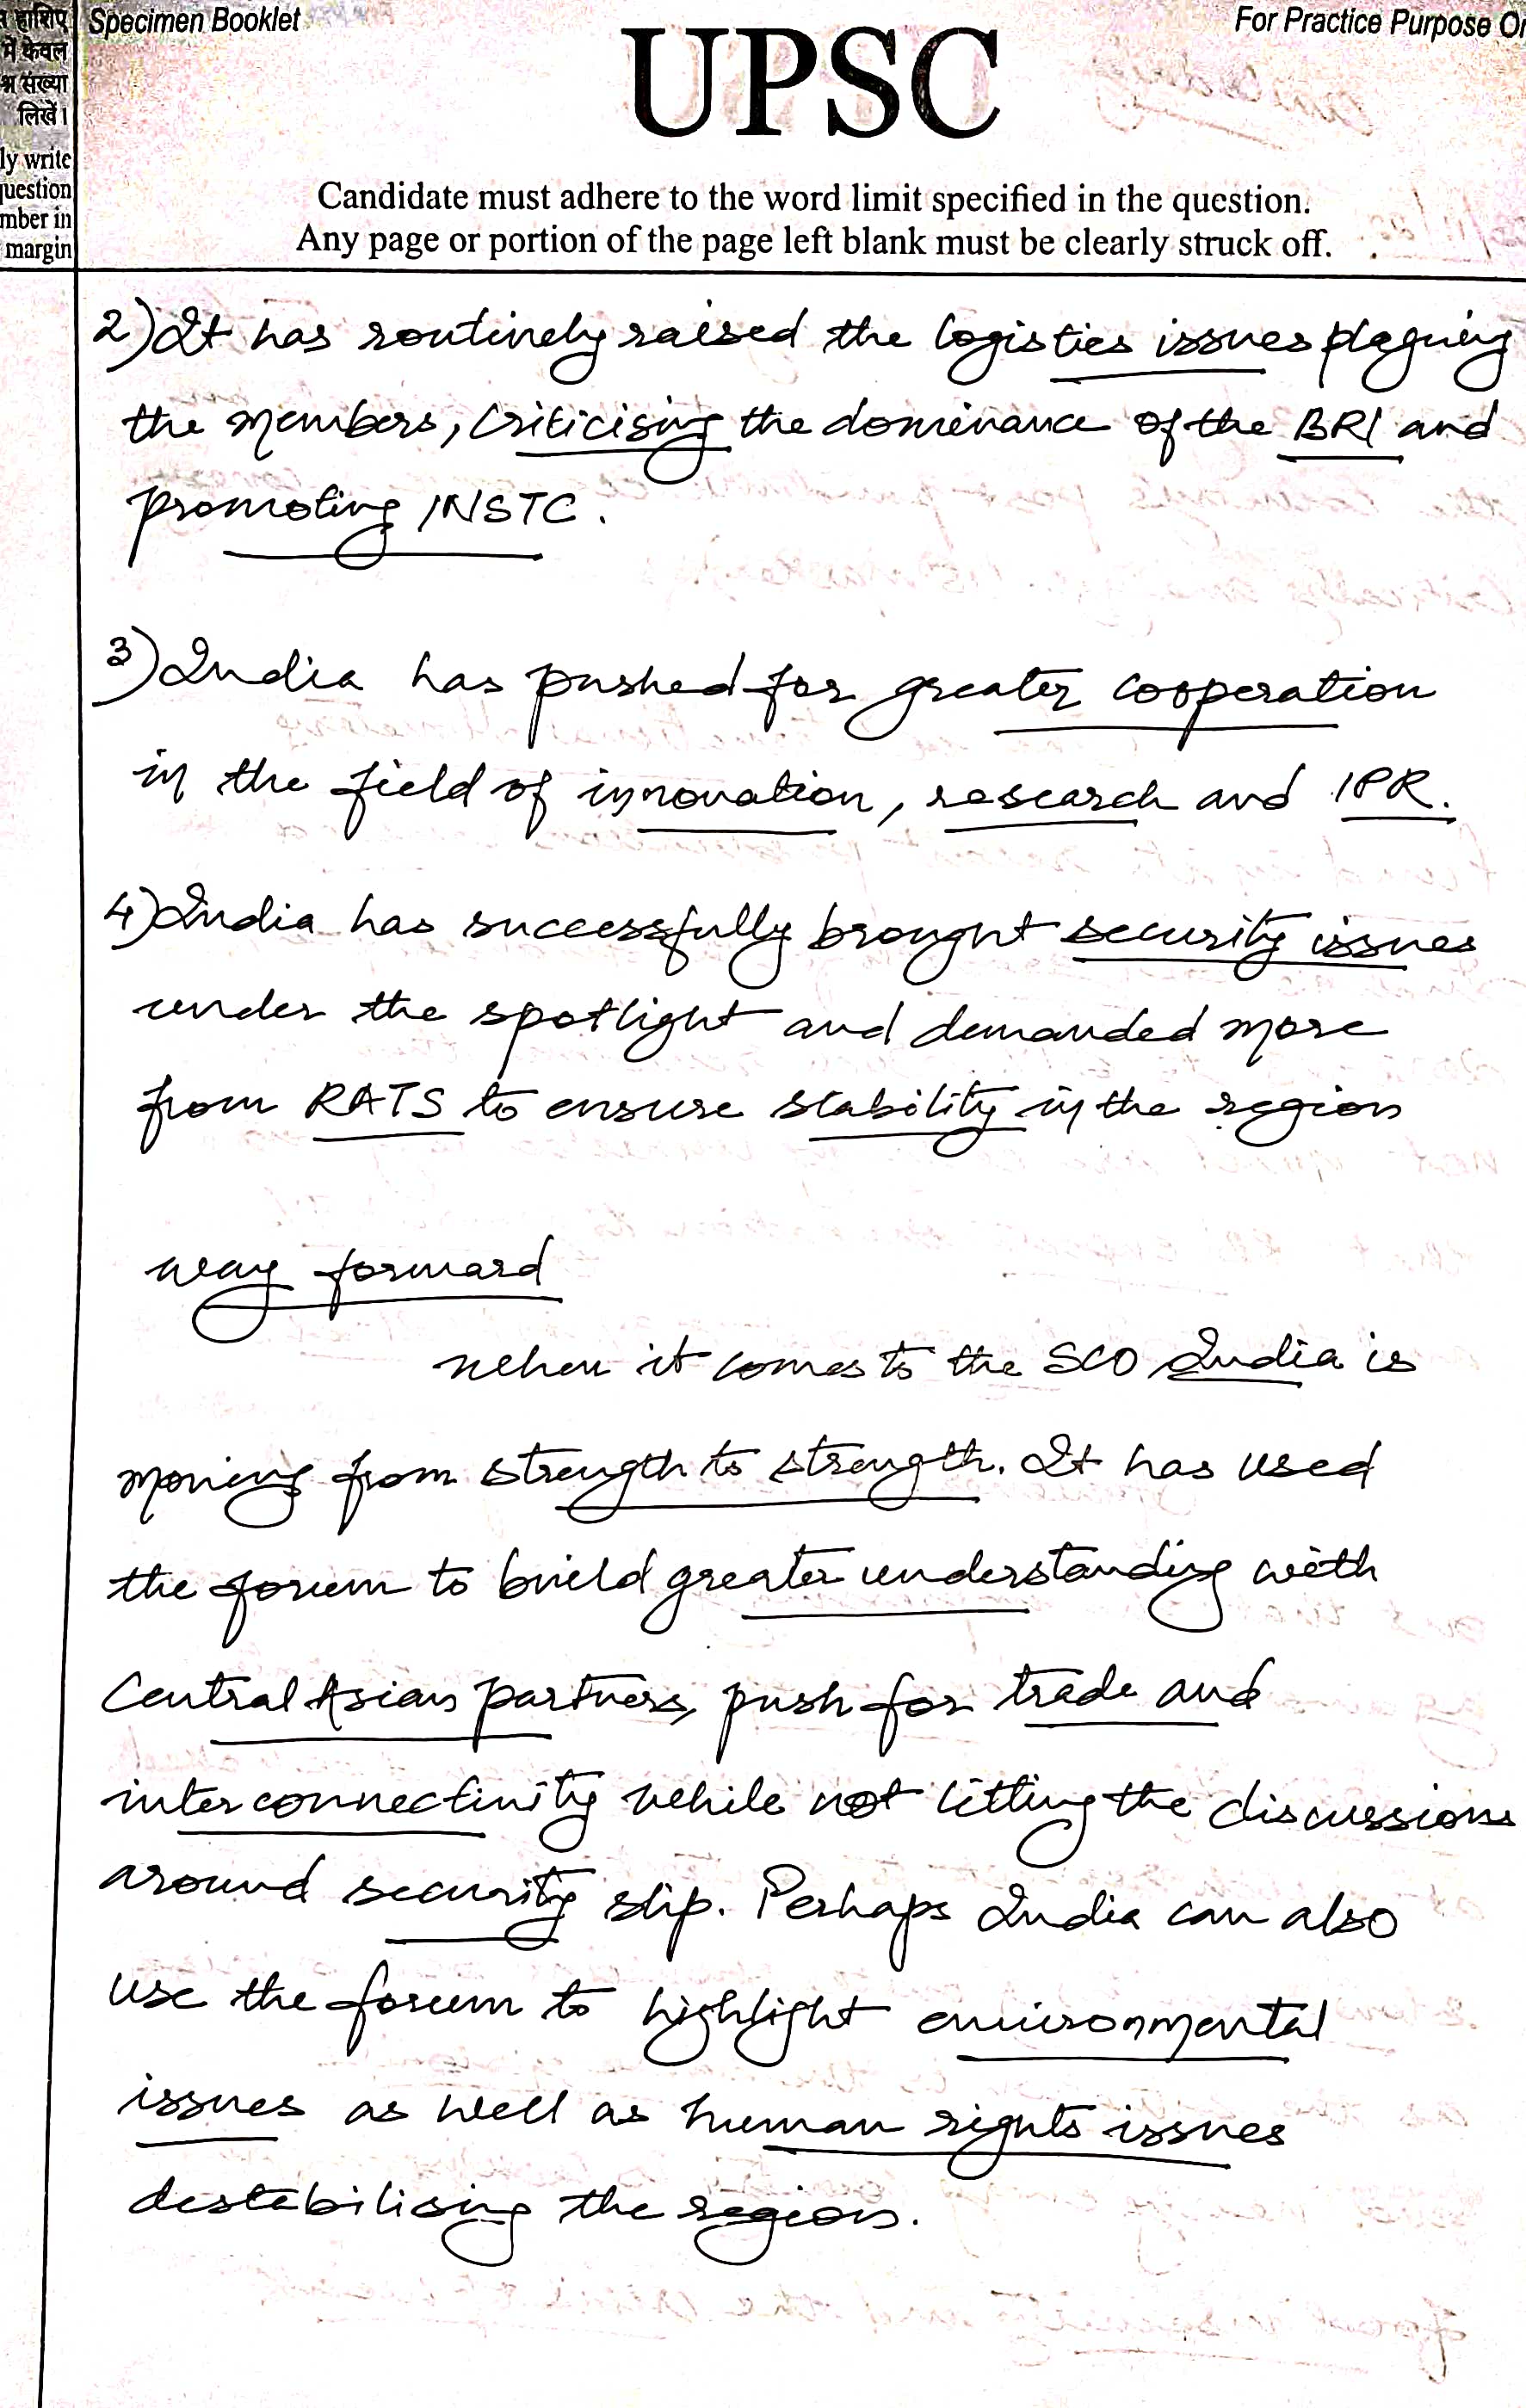 हाशिए
में केवल
संख्या
लिखें।
ly write
question
mber in
margin
Specimen Booklet
For Practice Purpose On
UPSC
Candidate must adhere to the word limit specified in the question.
Any page or portion of the page left blank must be clearly struck off.
2) It has routinely raised the logistics issues plaguing
the members, criticising the dominance of the BRI and
promoting INSTC.
3) India has pushed for greater cooperation
in the field of innovation, research and IPR.
4) India has successfully brought security issues
under the spotlight and demanded more
from RATS to ensure stability in the region
way forward
when it comes to the SCO India is
moving from strength to strength. It has used
the forum to build greater understanding with
Central Asian partners, push for trade and
interconnectivity while not letting the discussions
around security slip. Perhaps India can also
use the forum to highlight environmental
issues as well as human rights issues
destabilising the region.